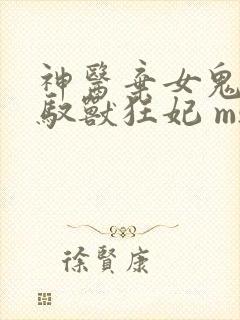 神醫棄女鬼
馭獸狂妃 m
徐賢康